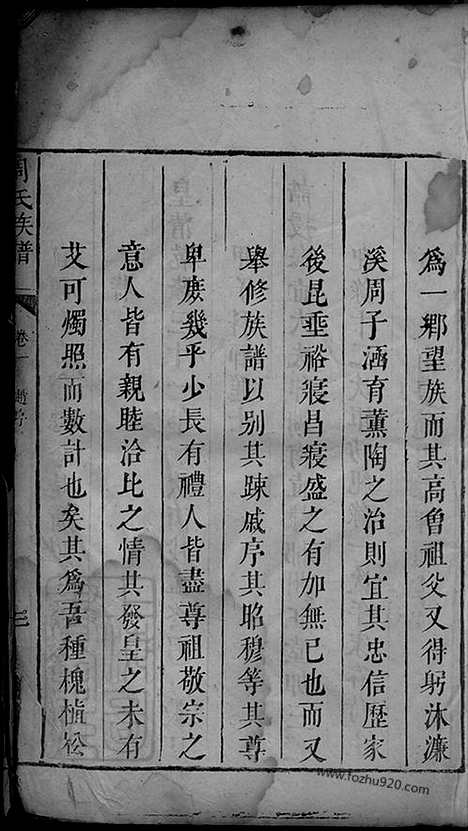 為一鄉望族而其高曾祖父又得躬沐濂
溪周子涵育薰陶之治則宜其忠信歷家
後昆垂裕寢昌寢盛之有加無已也而又
舉修族譜以别其踈戚序其昭穆等其尊
卑庶幾乎少長有禮人皆盡尊祖敬宗之
意人皆有親睦洽比之情其發皇之未有
艾可燭照而數計也矣其為吾種槐植松
周氏族譜 卷一 趙序 三
www.fozhu920.com